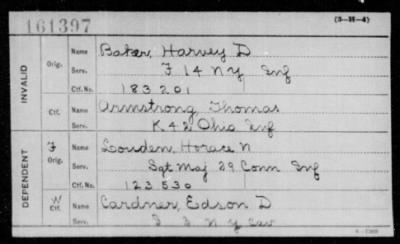 161397
(3-H-4)
INVALID
Orig.
Name Baker, Harvey D
Serv. F 14 N Y Inf
Ctf. No. 183201
Ctf.
Name Armstrong Thomas
Serv. K 42 Ohio Inf
DEPENDENT
F
Orig.
Name Louden, Horace N
Serv. Sgt Maj 29 Conn Inf
Ctf. No. 123530
W
Ctf.
Name Cardner, Edson D
Serv. N Y Cav